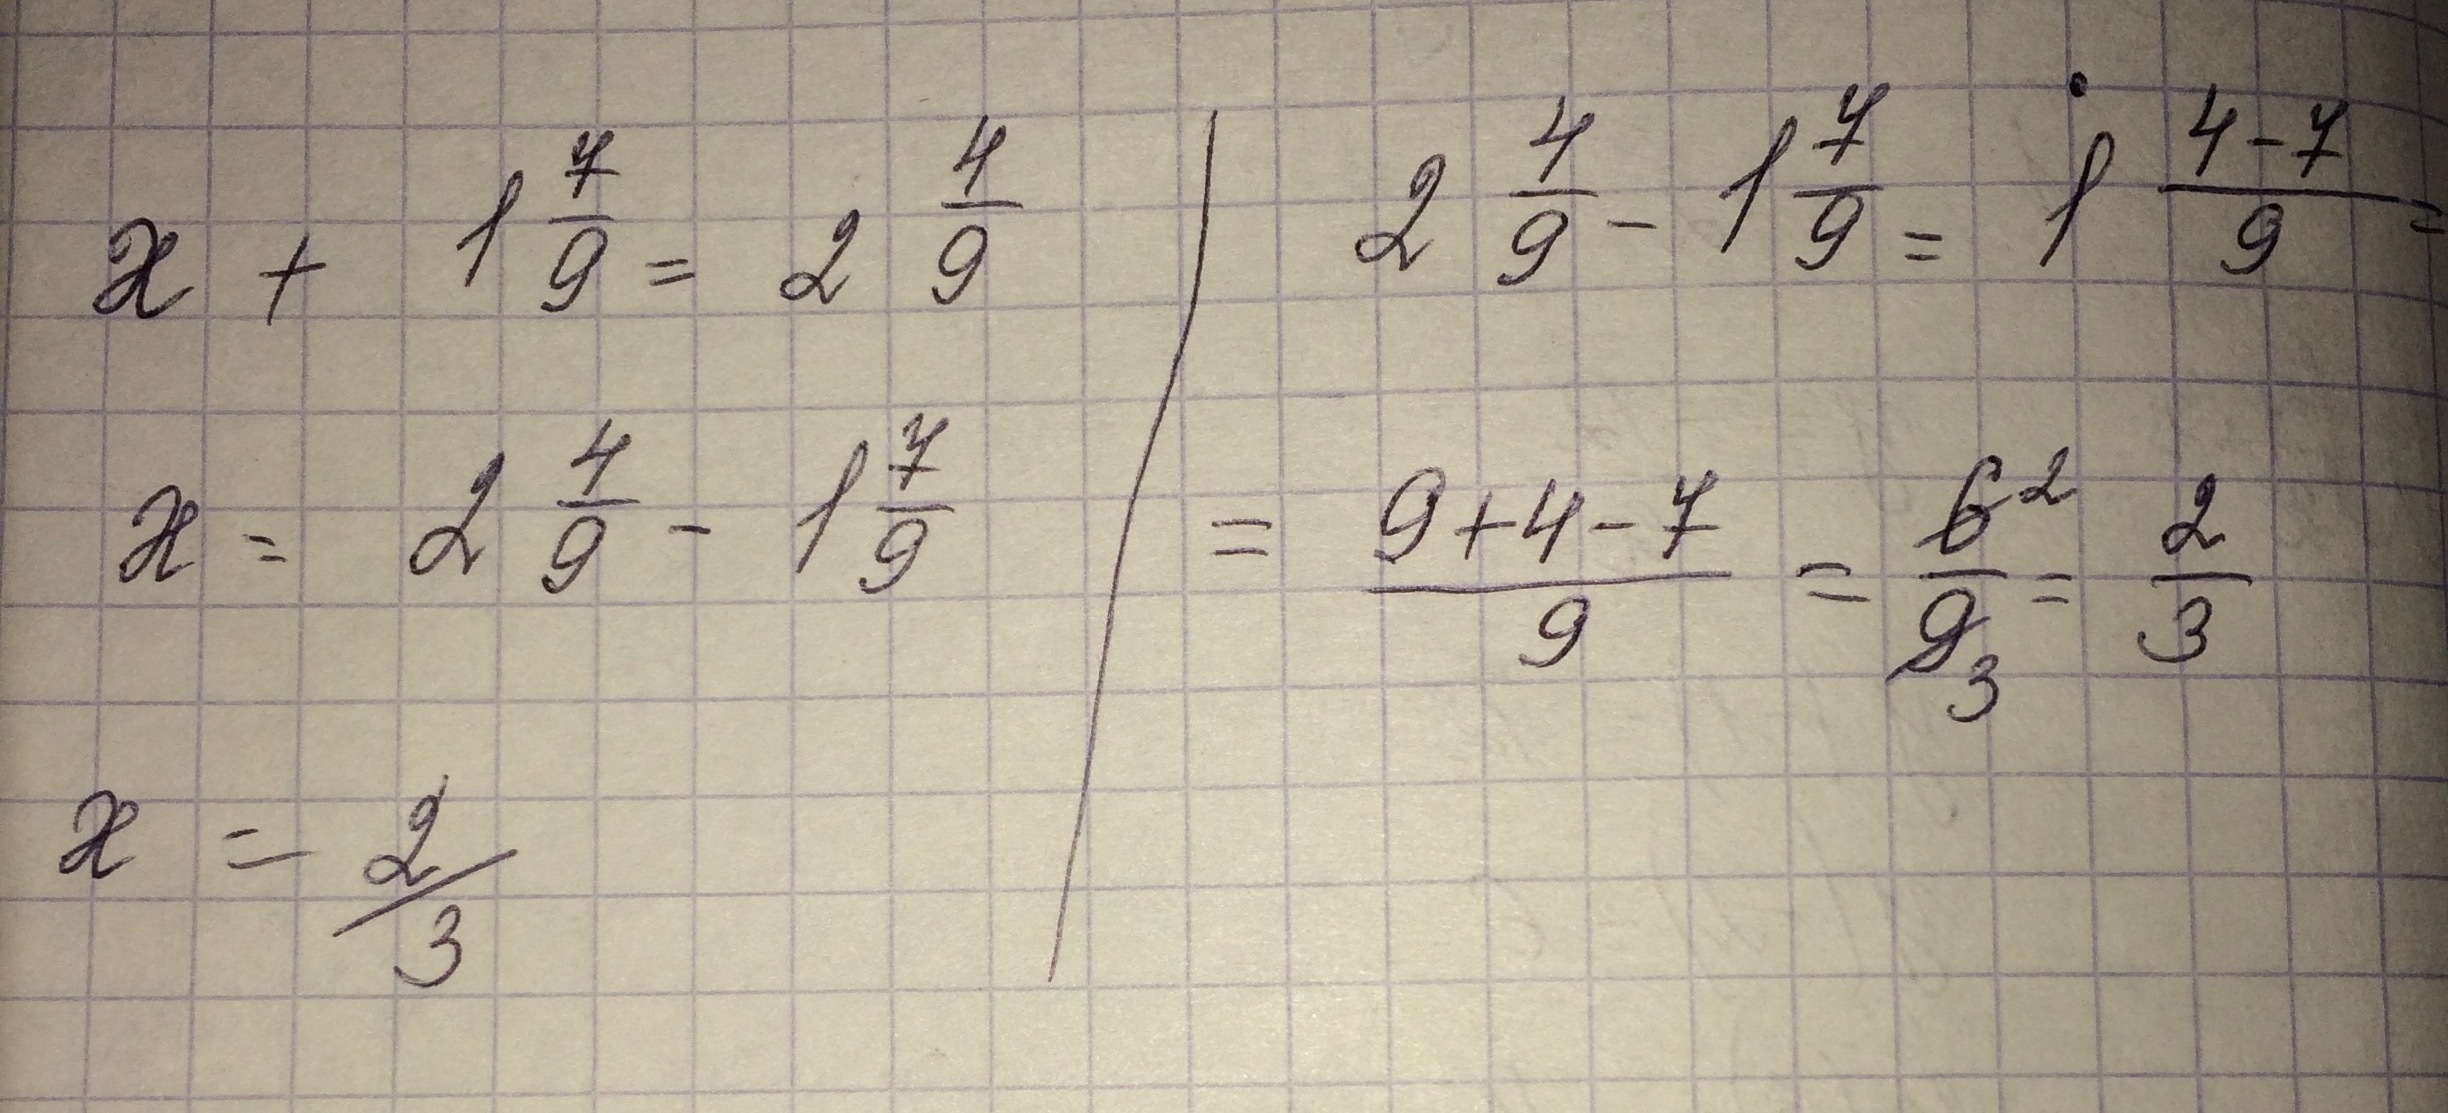 x + 1 7/9 = 2 4/9
x = 2 4/9 - 1 7/9
x = 2/3
2 4/9 - 1 7/9 = 1 (4-7)/9 =
= (9+4-7)/9 = 6²/9₃ = 2/3